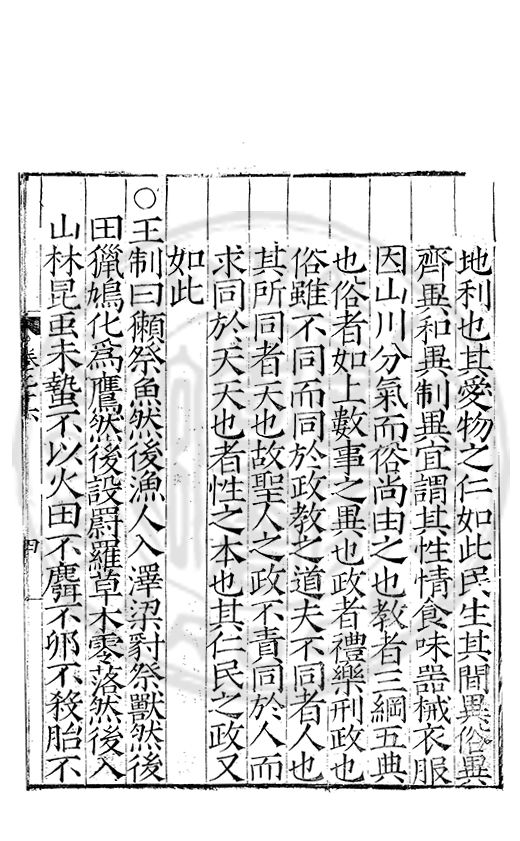 地利也其愛物之仁如此民生其間異俗異
齊異和異制異宜謂其性情食味器械衣服
因山川分氣而俗尚由之也教者三綱五典
也俗者如上數事之異也政者禮樂刑政也
俗雖不同而同於政教之道夫不同者人也
其所同者天也故聖人之政不責同於人而
求同於天天也者性之本也其仁民之政又
如此
○王制曰獺祭魚然後漁人入澤梁豺祭獸然後
田獵鳩化為鷹然後設罻羅草木零落然後入
山林昆䖝未蟄不以火田不麛不卵不殺胎不